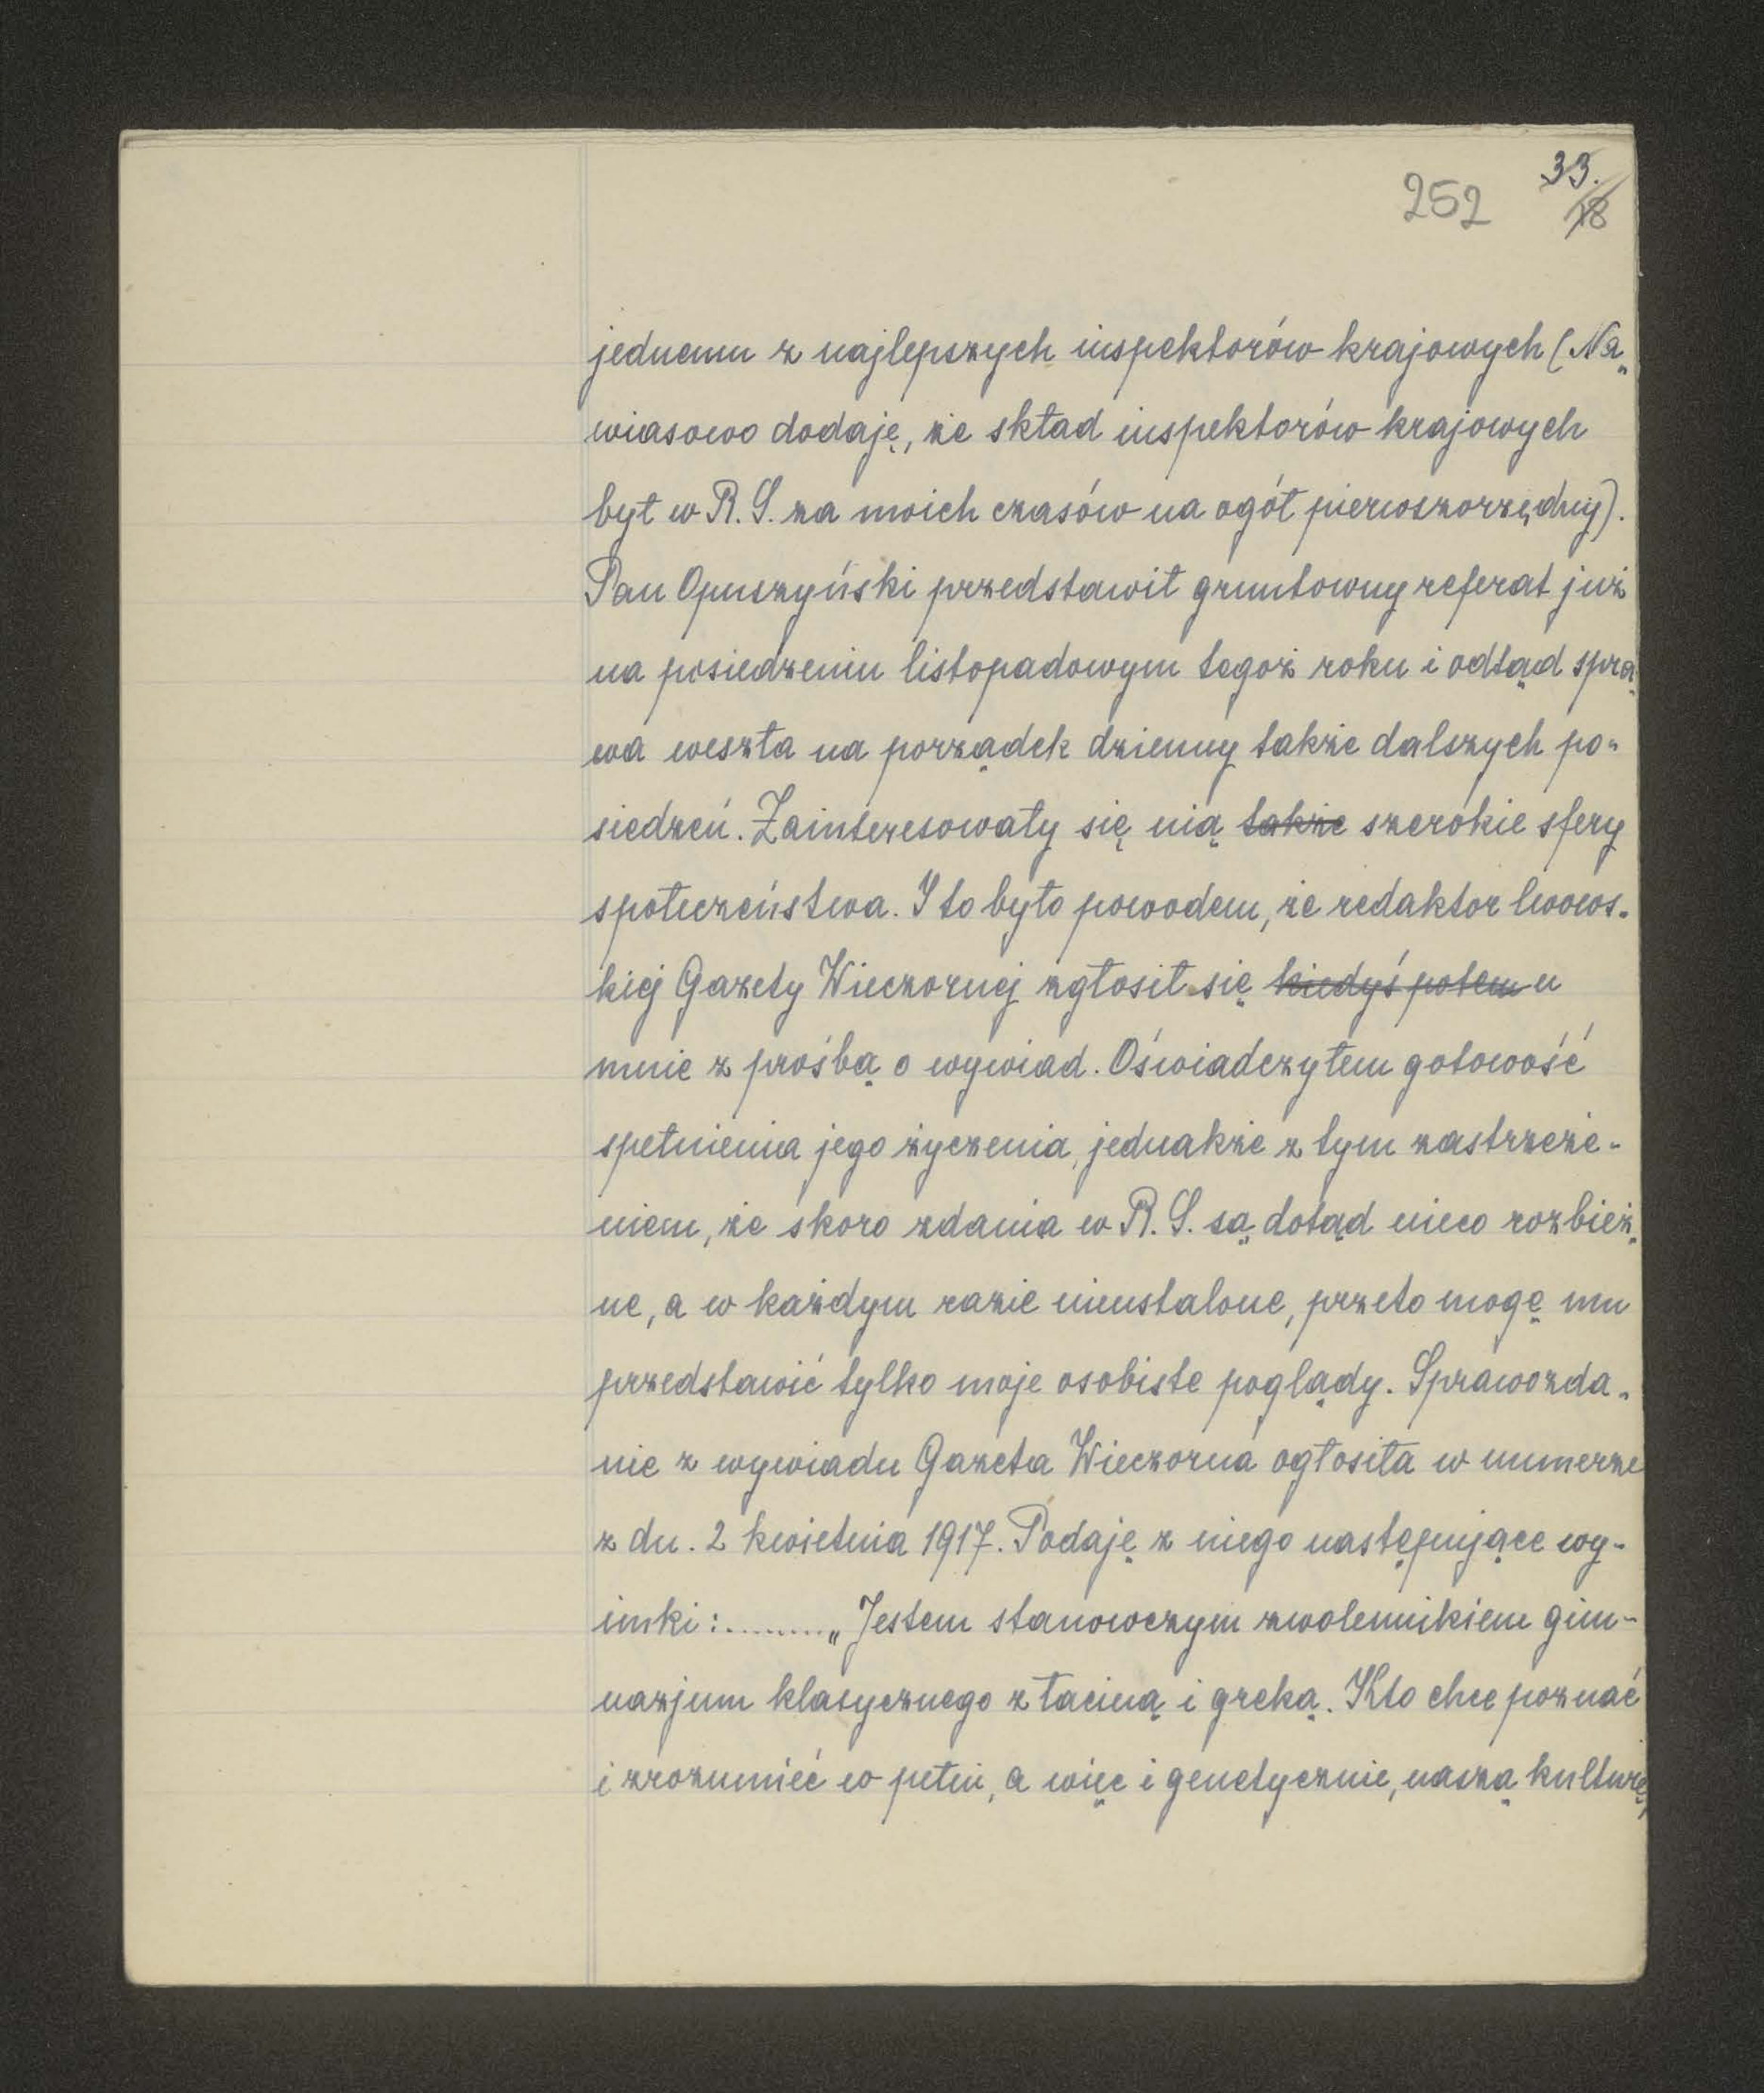 33.
252 18
jednemu z najlepszych inspektorów krajowych (Na„
wiasowo dodaję, że skład inspektorów krajowych
był w R. S. za moich czasów na ogół pierwszorzędny).
Pan Opuszyński przedstawił gruntowny referat już
na posiedzeniu listopadowym tegoż roku i odtąd spra„
wa weszła na porządek dzienny także dalszych po„
siedzeń. Zainteresowały się nią także szerokie sfery
społeczeństwa. I to było powodem, że redaktor lwows-
kiej Gazety Wieczornej zgłosił się kiedyś potem u
mnie z prośbą o wywiad. Oświadczyłem gotowość
spełnienia jego życzenia, jednakże z tym zastrzeże-
niem, że skoro zdania w R. S. są dotąd nieco rozbież„
ne, a w każdym razie nieustalone, przeto mogę mu
przedstawić tylko moje osobiste poglądy. Sprawozda„
nie z wywiadu Gazeta Wieczorna ogłosiła w numerze
z dn. 2 kwietnia 1917. Podaję z niego następujące wy-
imki :........„Jestem stanowczym zwolennikiem gim-
nazjum klasycznego z łaciną i greką. Kto chce poznać
i zrozumieć w pełni, a więc i genetycznie, naszą kulturę,